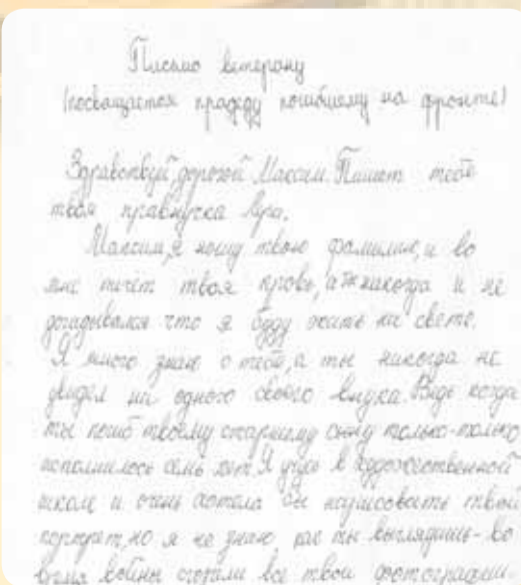 Письмо ветерану
(посвящается прадеду погибшему на фронте)
Здравствуй, дорогой Максим. Пишет тебе
твоя правнучка Вера.
Максим, я ношу твою фамилию, и во
мне течёт твоя кровь, а ты никогда и не
догадывался что я буду жить на свете.
Я много знаю о тебе, а ты никогда не
увидел ни одного своего внука. Ведь когда
ты погиб твоему старшему сыну только-только
исполнилось семь лет. Я учусь в художественной
школе и очень хотела бы нарисовать твой
портрет, но я не знаю как ты выглядишь - во
время войны сгорели все твои фотографии.